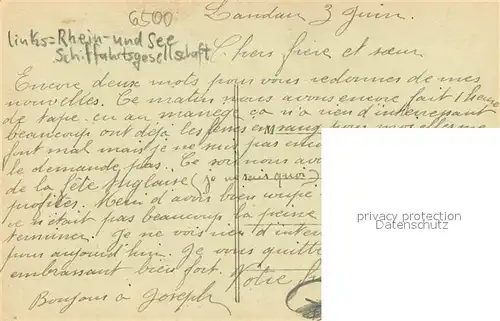 6500
Landau 3 Juin.
links = Rhein- und See
Schiffahrtsgesellschaft
Chers frère et sœur
Encore deux mots pour vous redonner de mes
nouvelles. Ce matin nous avons encore fait 1 heure
de tape-cu au manège ça n'a rien d'intéressant
beaucoup ont déjà les fesses en sang pour moi elles me
font mal mais je ne me suis pas enco
le demande pas. Ce soir nous avo
de la fête Anglaise (je ne sais quoi)
profiter.
ce n'était pas beaucoup la peine
terminer. Je ne vois rien d'inter
pour aujourd'hui. Je vous quitte
embrassant bien fort. Votre
Bonjour à Joseph
privacy protection
Datenschutz